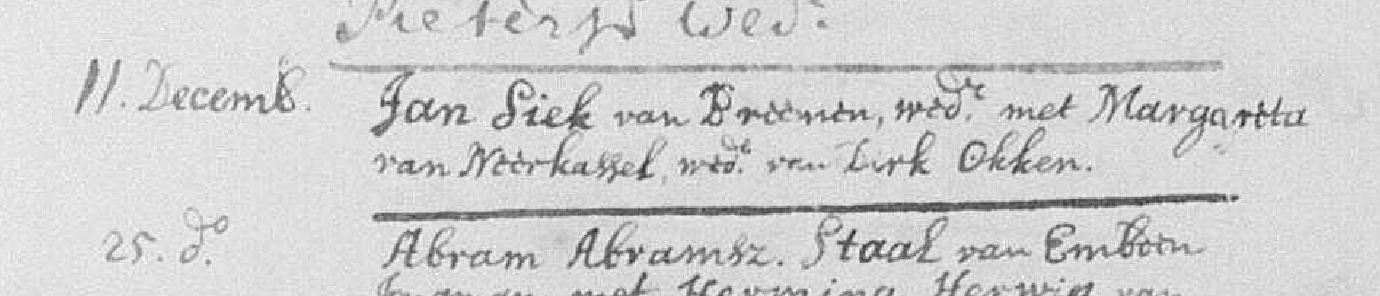 Pietersz Wed:
11. Decemb. Jan Siek van Breemen, wed.r met Margareta
van Neerkassel, wed.e van Dirk Okken.
25. do. Abram Abramsz. Staal van Embden
met Herwig van